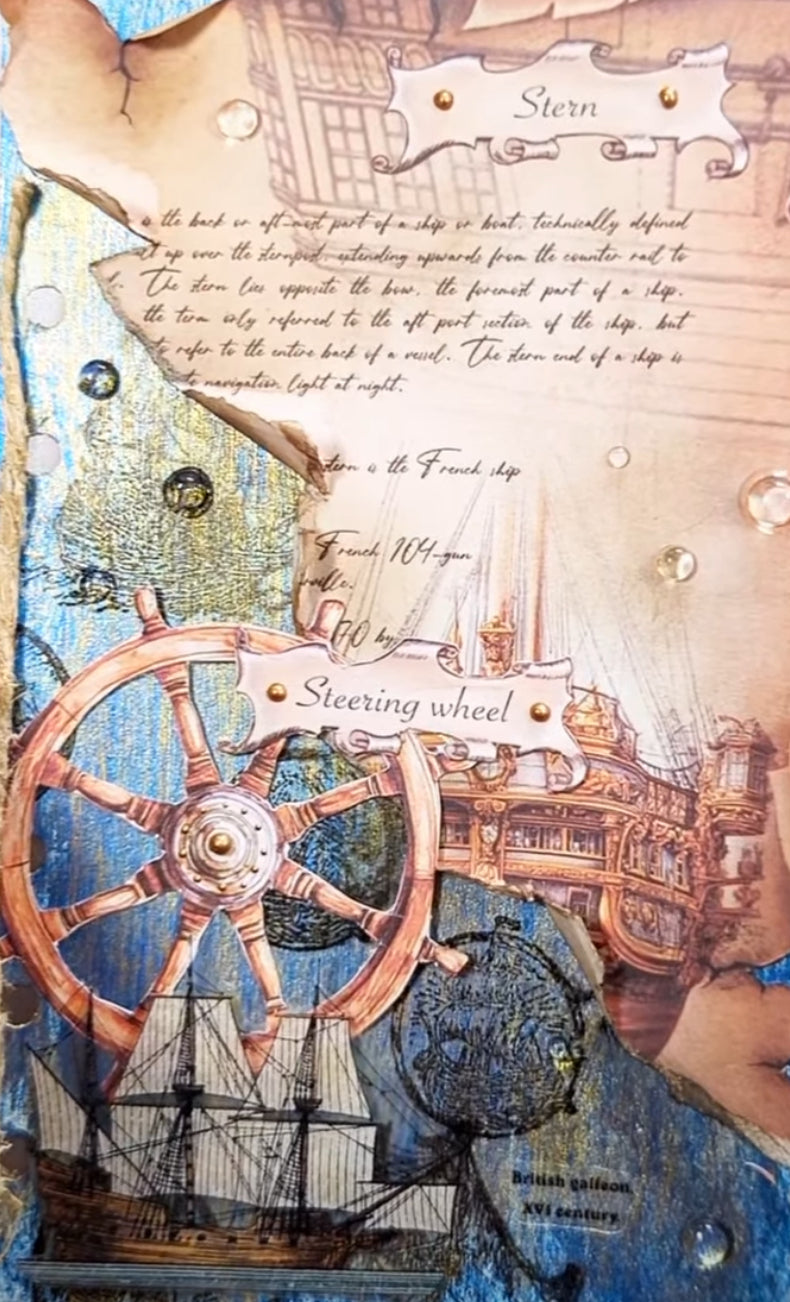 Stern
is the back or aft-most part of a ship or boat, technically defined
up over the sternpost, extending upwards from the counter rail to
The stern lies opposite the bow, the foremost part of a ship.
the term only referred to the aft port section of the ship, but
to refer to the entire back of a vessel. The stern end of a ship is
navigation light at night.
stern is the French ship
French 104-gun
ville.
70 by
Steering wheel
British galleon.
XVI century.